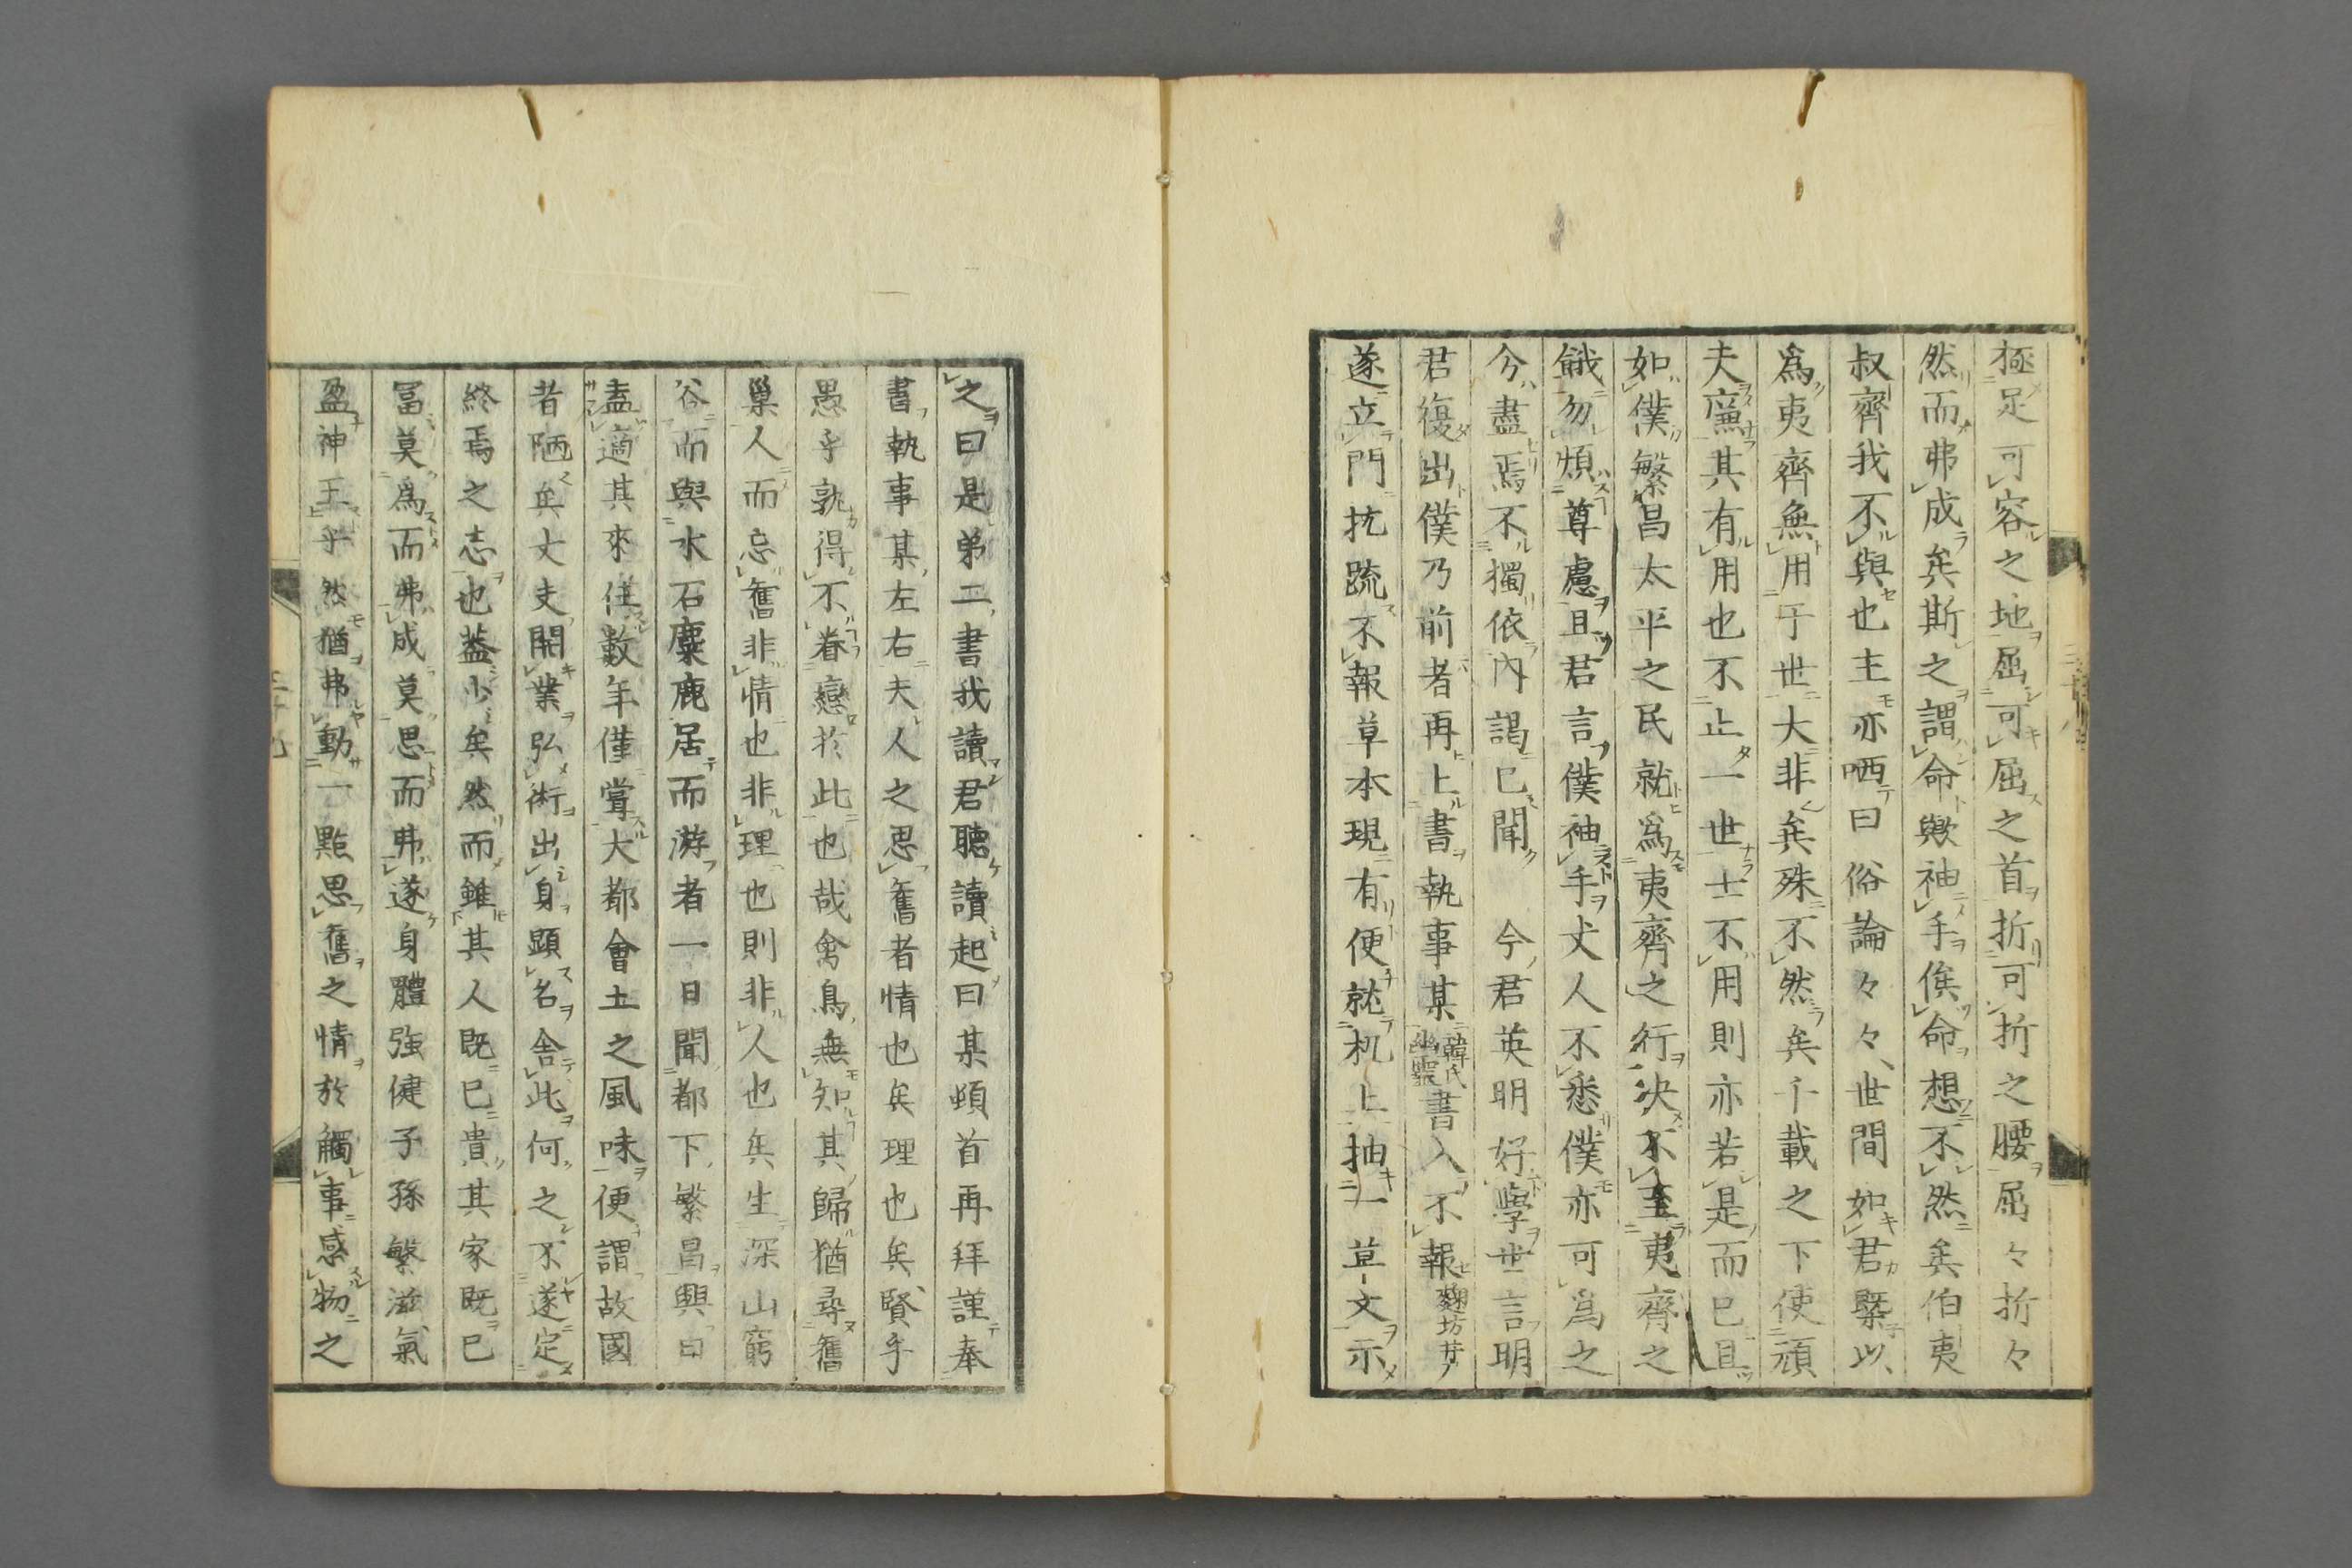 極足可容之地屈可屈之首折可折之腰屈々折々
然而弗成矣斯之謂命歟袖手俟命想不然矣伯夷
叔齊我不與也主亦哂曰俗論々々世間如君槩以
爲夷齊無用于世大非矣殊不然矣千載之下使頑
夫廉其有用也不止一世士不用則亦若是而已且
如僕繁昌太平之民就爲夷齊之行决不至夷齊之
餓勿煩尊慮且君言僕袖手丈人不悉僕亦可爲之
兮盡焉不獨依內謁已聞 今君英明好學世言明
君復出僕乃前者再上書執事某韓氏幽靈書入不報麹坊サノ
遂立門抗疏不報草本現有便就机上抽一草文示
之曰是弟二書我讀君聽讀起曰某頓首再拜謹奉
書執事某左右夫人之思舊者情也矣理也矣賢乎
愚乎孰得不眷戀於此也哉禽鳥無知其歸猶尋舊
巢人而忘舊非情也非理也則非人也矣生深山窮
谷而與水石麋鹿居而游者一日聞都下繁昌輿曰
盍適其來住數年僅嘗大都會土之風味便謂故國
者陋矣丈夫開業弘術出身顯名舍此何之不遂定
終焉之志也蓋少矣然而雖其人既已貴其家既已
冨莫爲而弗成莫思而弗遂身體強健子孫繁滋氣
盈神王乎然猶弗動一點思舊之情於觸事感物之
三十九